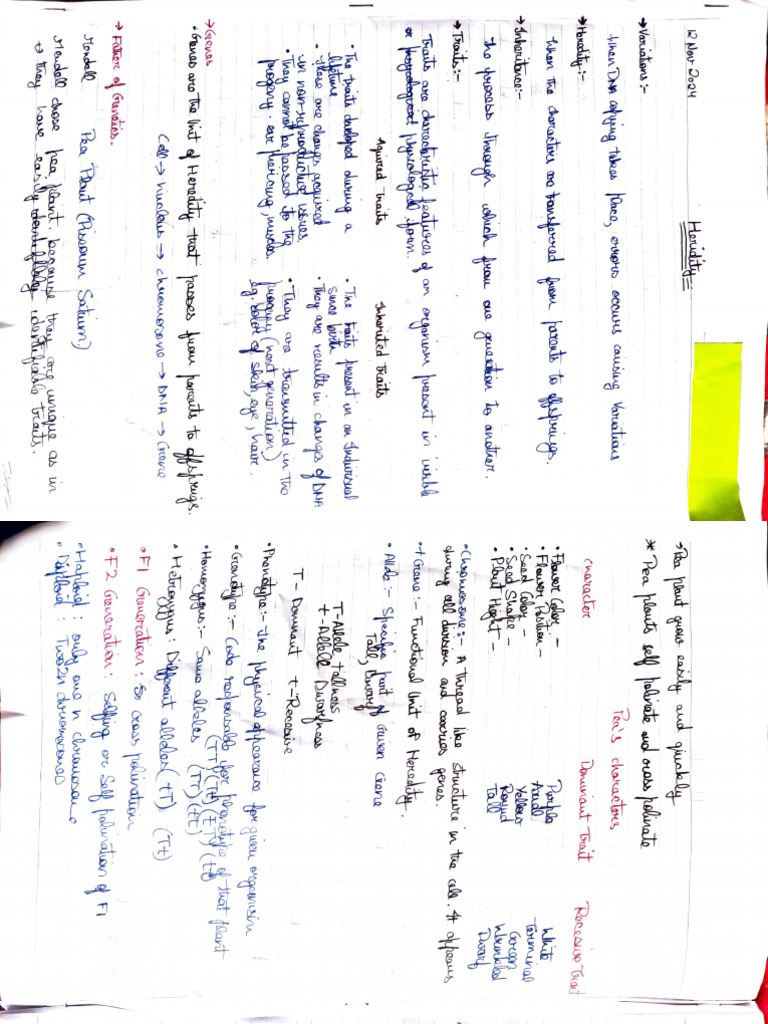 12 Nov 2024
Heridity:-
→ Variations :-
When DNA copying takes place, errors occurs causing Variations
→ Heridity:-
When the characters are transferred from parents to offsprings.
→ Inheritance:-
The process through which from one generation to another.
→ Traits:-
Traits are characteristic features of an organism present in visible
or physiological form.
Aquired Traits
Inherited Traits
• The traits developed during a
lifetime
• These are changes acquired
in non-reproductive issues,
• They cannot be passed to the
progeny. ear piercing, muscles.
• The traits present in an Individual
since birth
• They are results in changes of DNA
• They are transmitted in the
progeny (next generation)
Eg: color of skin, eye, hair.
→ Genes
• Genes are the Unit of Heredity that passes from parents to offsprings.
Cell → nucleus → chromosome → DNA → Gene
→ Father of Genetics.
Mendell Pea Plant (Pissum Satum)
Mendell chose pea plant, because they are unique as in
→ they have easily identifiable traits.
→ Pea plant grows easily and quickely
* Pea plants self polinate and cross polinate
Pea's characters
Character Dominant Trait Recesive Trait
• Flower Color - Purple White
• Flower Position - Axial Terminal
• Seed Color - Yellow Green
• Seed Shape - Round Wrinkled
• Plant Hight - Tall Dwarf
• Chromosome:- A Thread like structure in the cell. It appears
during cell division and carries genes.
• + Gene:- Functional Unit of Heredity.
• Allele :- Specific part of Given Gene
Tall, Dwarf
T-Allele tallness
t-Allele Dwarfness
T- Dominant t-Recesive
• Phenotype:- The physical appearance for given organism
• Genotype:- Code responsible for phenotype of that plant
(TT) (Tt) (tT) (tt)
• Homozygus:- Same alleles (TT) (tt)
• Hetrozygus: Different alleles (tT) (Tt)
• F1 Generation: cross polination
• F2 Generation: Selfing or Self polination of F1
• Haploid: only one n chromosome
• Diploid: Two 2n chromosomes